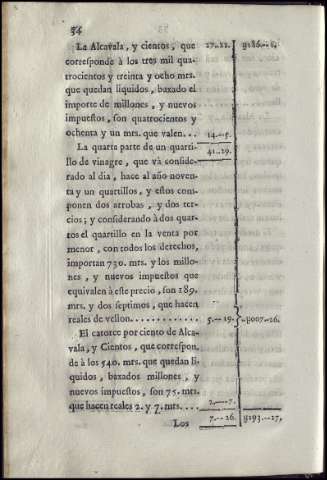 34
La Alcavala, y cientos, que 27..22. g186..8.
corresponde à los tres mil qua-
trocientos y treinta y ocho mrs.
que quedan liquidos, baxado el
importe de millones, y nuevos
impuestos, son quatrocientos y
ochenta y un mrs. que valen... 14..5.
La quarta parte de un quarti- 41..29.
llo de vinagre, que và conside-
rado al dia, hace al año noven-
ta y un quartillos, y estos com-
ponen dos arrobas, y dos ter-
cios; y considerando à dos quar-
tos el quartillo en la venta por
menor, con todos los derechos,
importan 730. mrs. y los millo-
nes, y nuevos impuestos que
equivalen à este precio, son 189.
mrs. y dos septimos, que hacen
reales de vellon............ 5..19. g007..26.
El catorce por ciento de Alca-
vala, y Cientos, que correspon-
de à los 540. mrs. que quedan li-
quidos, baxados millones, y
nuevos impuestos, son 75. mrs.
que hacen reales 2. y 7. mrs.... 2...7.
7..26. g193..27.
Los